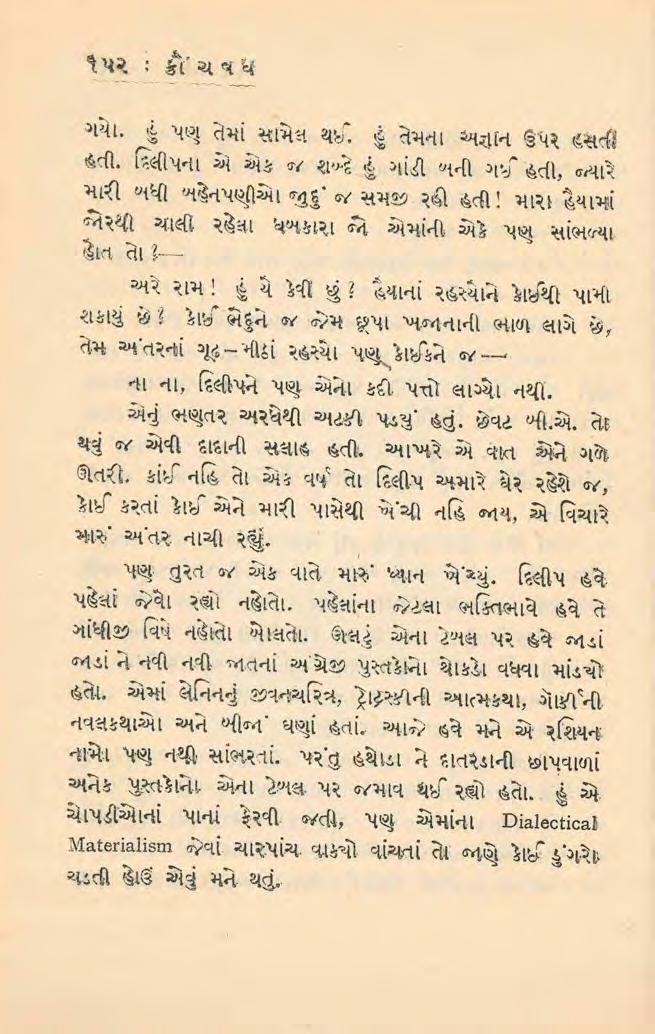 ૧૫૨ : ક્રૌંચવધ
ગયો. હું પણ તેમાં સામેલ થઈ. હું તેમના અજ્ઞાન ઉપર હસતી
હતી. દિલીપના એ એક જ શબ્દે હું ગાંડી બની ગઈ હતી, જ્યારે
મારી બધી બહેનપણીઓ જુદું જ સમજી રહી હતી! મારા હૈયામાં
જોરથી ચાલી રહેલા ધબકારા જો એમાંની એકે પણ સાંભળ્યા
હોત તો?—
અરે રામ! હું યે કેવી છું? હૈયાનાં રહસ્યોને કોઈથી પામી
શકાયું છે? કોઈ ભેદુને જ જેમ છૂપા ખજાનાની ભાળ લાગે છે,
તેમ અંતરનાં ગૂઢ–મીઠાં રહસ્યો પણ કોઈકને જ——
ના ના, દિલીપને પણ એનો કદી પત્તો લાગ્યો નથી.
એનું ભણતર અરધેથી અટકી પડ્યું હતું. છેવટ બી.એ. તો
થવું જ એવી દાદાની સલાહ હતી. આખરે એ વાત એને ગળે
ઊતરી. કાંઈ નહિ તો એક વર્ષ તો દિલીપ અમારે ઘેર રહેશે જ,
કોઈ કરતાં કોઈ એને મારી પાસેથી ખેંચી નહિ જાય, એ વિચારે
મારું અંતર નાચી રહ્યું.
પણ તુરત જ એક વાતે મારું ધ્યાન ખેંચ્યું. દિલીપ હવે
પહેલાં જેવો રહ્યો નહોતો. પહેલાંના જેટલા ભક્તિભાવે હવે તે
ગાંધીજી વિષે નહોતો બોલતો. ઊલટું એના ટેબલ પર હવે જાડાં
જાડાં ને નવી નવી જાતનાં અંગ્રેજી પુસ્તકોનો થોકડો વધવા માંડ્યો
હતો. એમાં લેનિનનું જીવનચરિત્ર, ટ્રોટ્સ્કીની આત્મકથા, ગૉર્કીની
નવલકથાઓ અને બીજાં ઘણાં હતાં. આજે હવે મને એ રશિયન
નામો પણ નથી સાંભરતાં. પરંતુ હથોડા ને દાતરડાની છાપવાળાં
અનેક પુસ્તકોનો એના ટેબલ પર જમાવ થઈ રહ્યો હતો. હું એ
ચોપડીઓનાં પાનાં ફેરવી જતી, પણ એમાંના Dialectical
Materialism જેવાં ચારપાંચ વાક્યો વાંચતાં તો જાણે કોઈ ડુંગરો
ચડતી હોઉં એવું મને થતું.